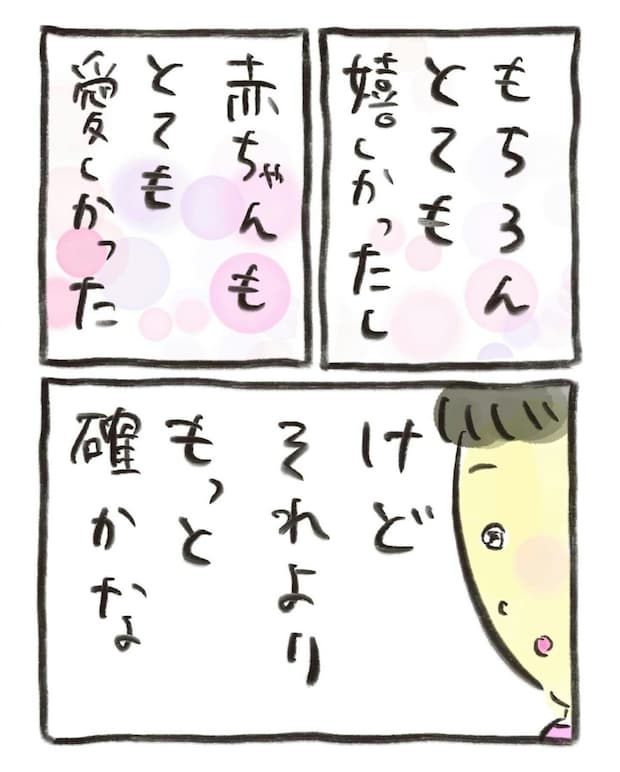 もちろん
とても
嬉しかったし
赤ちゃんも
とても
愛しかった
けど
それより
もっと
確かな